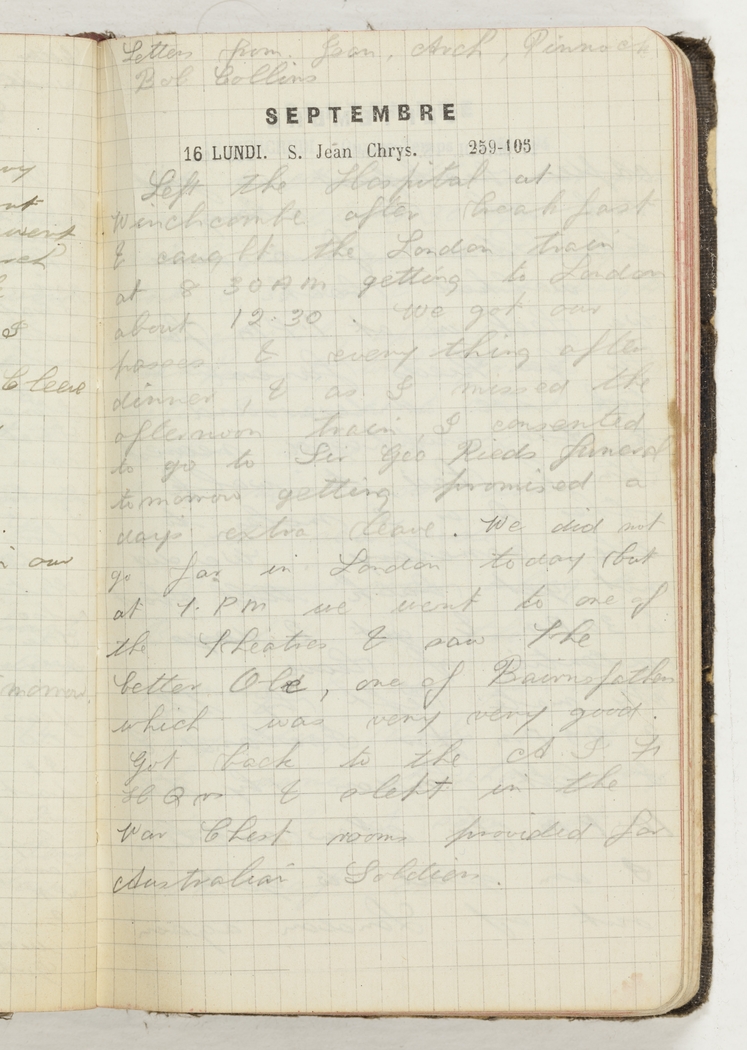 Letters from. Jean, Arch, Pinnock
Bob Collins
SEPTEMBRE
16 LUNDI. S. Jean Chrys. 259-105
Left the Hospital at
Winchcombe after breakfast
& caught the London train
at 8 30 AM getting to London
about 12.30. We got our
passes & every thing after
dinner, & as I missed the
afternoon train, I consented
to go to Sir Geo Rieds funeral
tomorrow getting promised a
days extra leave. We did not
go far in London today but
at 7. PM we went to one of
the Theatres & saw The
better Ole, one of Bairnsfathers
which was very very good.
Got back to the A I F
H Qrs & slept in the
War Chest rooms provided for
Australian Soldiers.
our
morrow